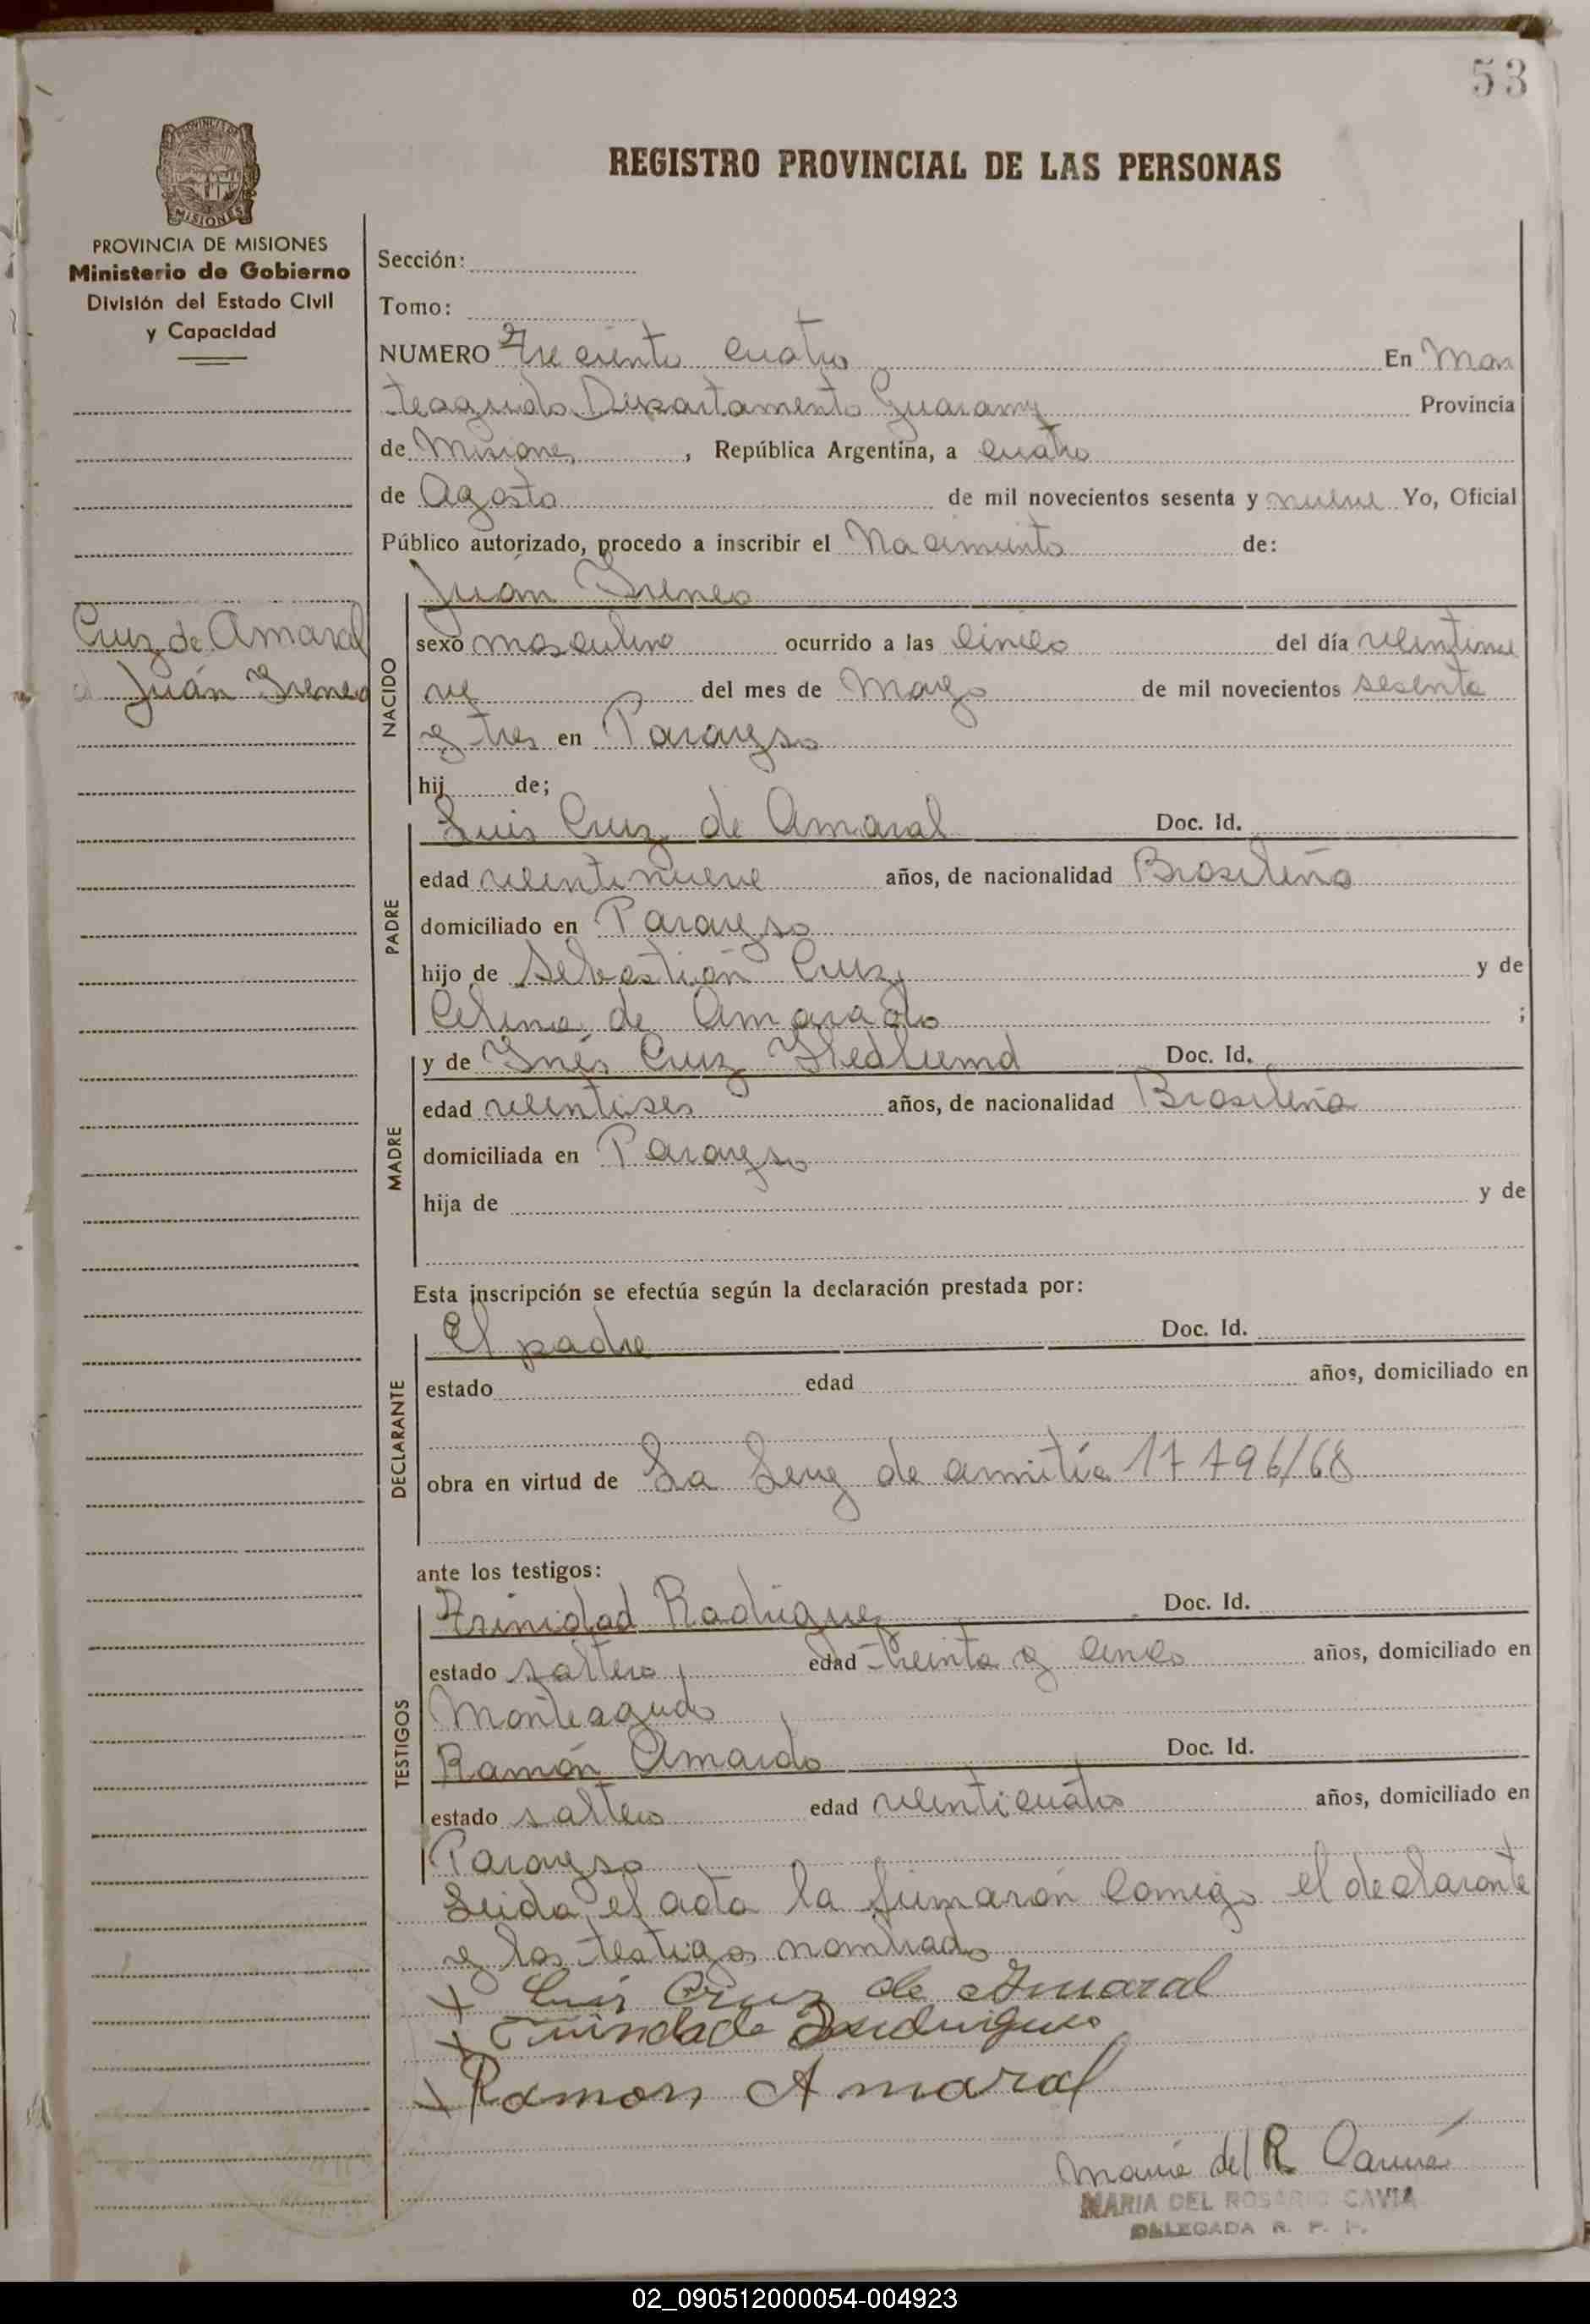 53
REGISTRO PROVINCIAL DE LAS PERSONAS
PROVINCIA DE MISIONES
MISIONES
PROVINCIA DE MISIONES
Ministerio de Gobierno
División del Estado Civil
y Capacidad
Cruz de Amaral
Juán Ireneo
Sección:
Tomo:
NUMERO Treciento cuatro En Mon
teagudo Departamento Guarany Provincia
de Misiones, República Argentina, a cuatro
de Agosto de mil novecientos sesenta y nueve Yo, Oficial
Público autorizado, procedo a inscribir el Nacimiento de:
NACIDO
Juán Ireneo
sexo masculino ocurrido a las cinco del día veintinue
ve del mes de Mayo de mil novecientos sesenta
y tres en Parayso
hij de;
PADRE
Luis Cruz de Amaral Doc. Id.
edad veintinueve años, de nacionalidad Brasileño
domiciliado en Parayso
hijo de Sebastián Cruz y de
Celina de Amarado ;
MADRE
y de Inés Cruz Hedlumd Doc. Id.
edad veintiseis años, de nacionalidad Brasileña
domiciliada en Parayso
hija de y de
Esta inscripción se efectúa según la declaración prestada por:
DECLARANTE
El padre Doc. Id.
estado edad años, domiciliado en
obra en virtud de La Ley de amitía 17796/68
ante los testigos:
TESTIGOS
Trinidad Rodriguez Doc. Id.
estado soltero edad treinta y cinco años, domiciliado en
Monteagudo
Ramón Amardo Doc. Id.
estado soltero edad veinticuatro años, domiciliado en
Parayso
Leida el acta la firmarón comigo el declarante
y los testigos nombrado
+ Luis Cruz de Amaral
+ Trindade
+ Ramon Amaral
Maria del R
MARIA DEL ROSARIO CAVIA
DELEGADA R. P. P.
02_090512000054-004923